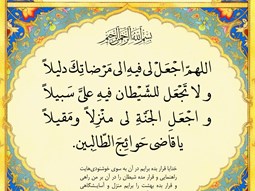 بسم الله الرحمن الرحیم
اللهم اجعل لی فیه الی مرضاتک دلیلاً
و لا تجعل للشیطان فیه علی سبیلاً
و اجعل الجنة لی منزلاً و مقیلاً
یا قاضی حوائج الطالبین.
خدایا قرار بده برایم در آن به سوی خوشنودی‌هایت
راهنمایی و قرار مده شیطان را در آن بر من راهی
و قرار بده بهشت را برایم منزل و آسایشگاهی